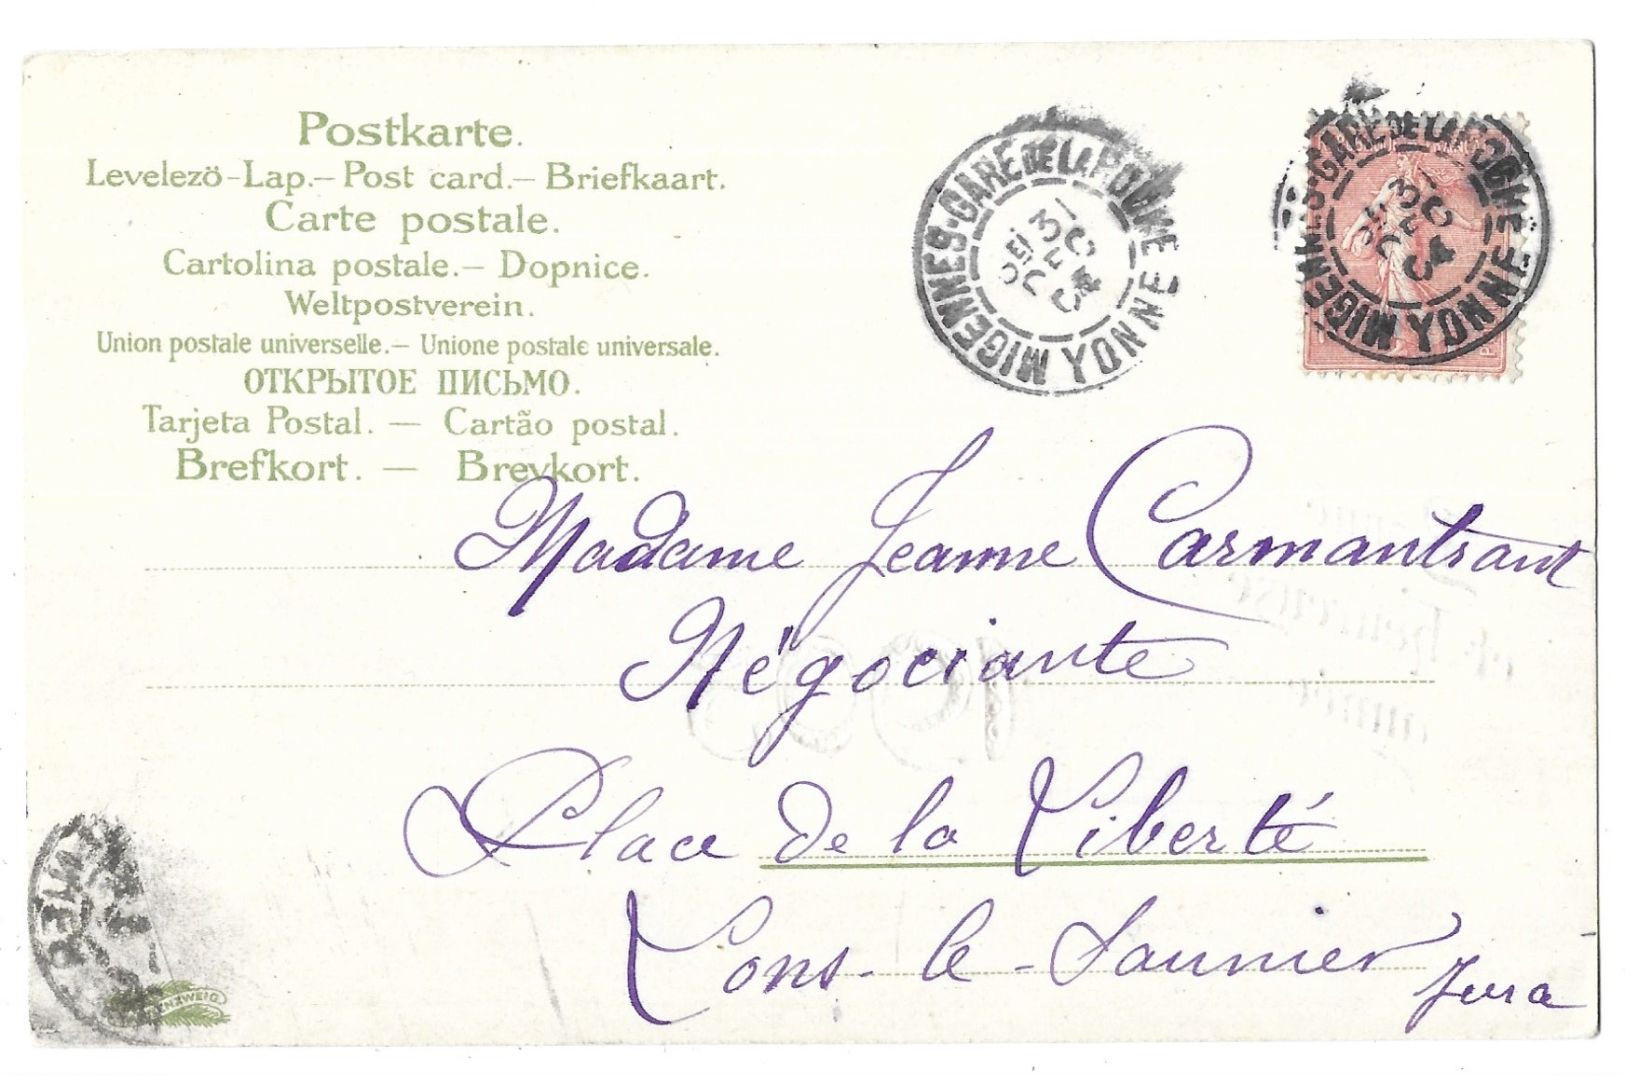 Postkarte.
Levelezö-Lap.— Post card.— Briefkaart.
Carte postale.
Cartolina postale.— Dopnice.
Weltpostverein.
Union postale universelle.— Unione postale universale.
ОТКРЫТОЕ ПИСЬМО.
Tarjeta Postal. — Cartão postal.
Brefkort. — Brevkort.
MIGENNES-GARE DE LA ROCHE
31
DEC
04
YONNE
MIGENNES-GARE DE LA ROCHE
31
DEC
04
YONNE
Madame Jeanne Carmantrant
Négociante
Place de la Liberté
Lons-le-Saunier
Jura